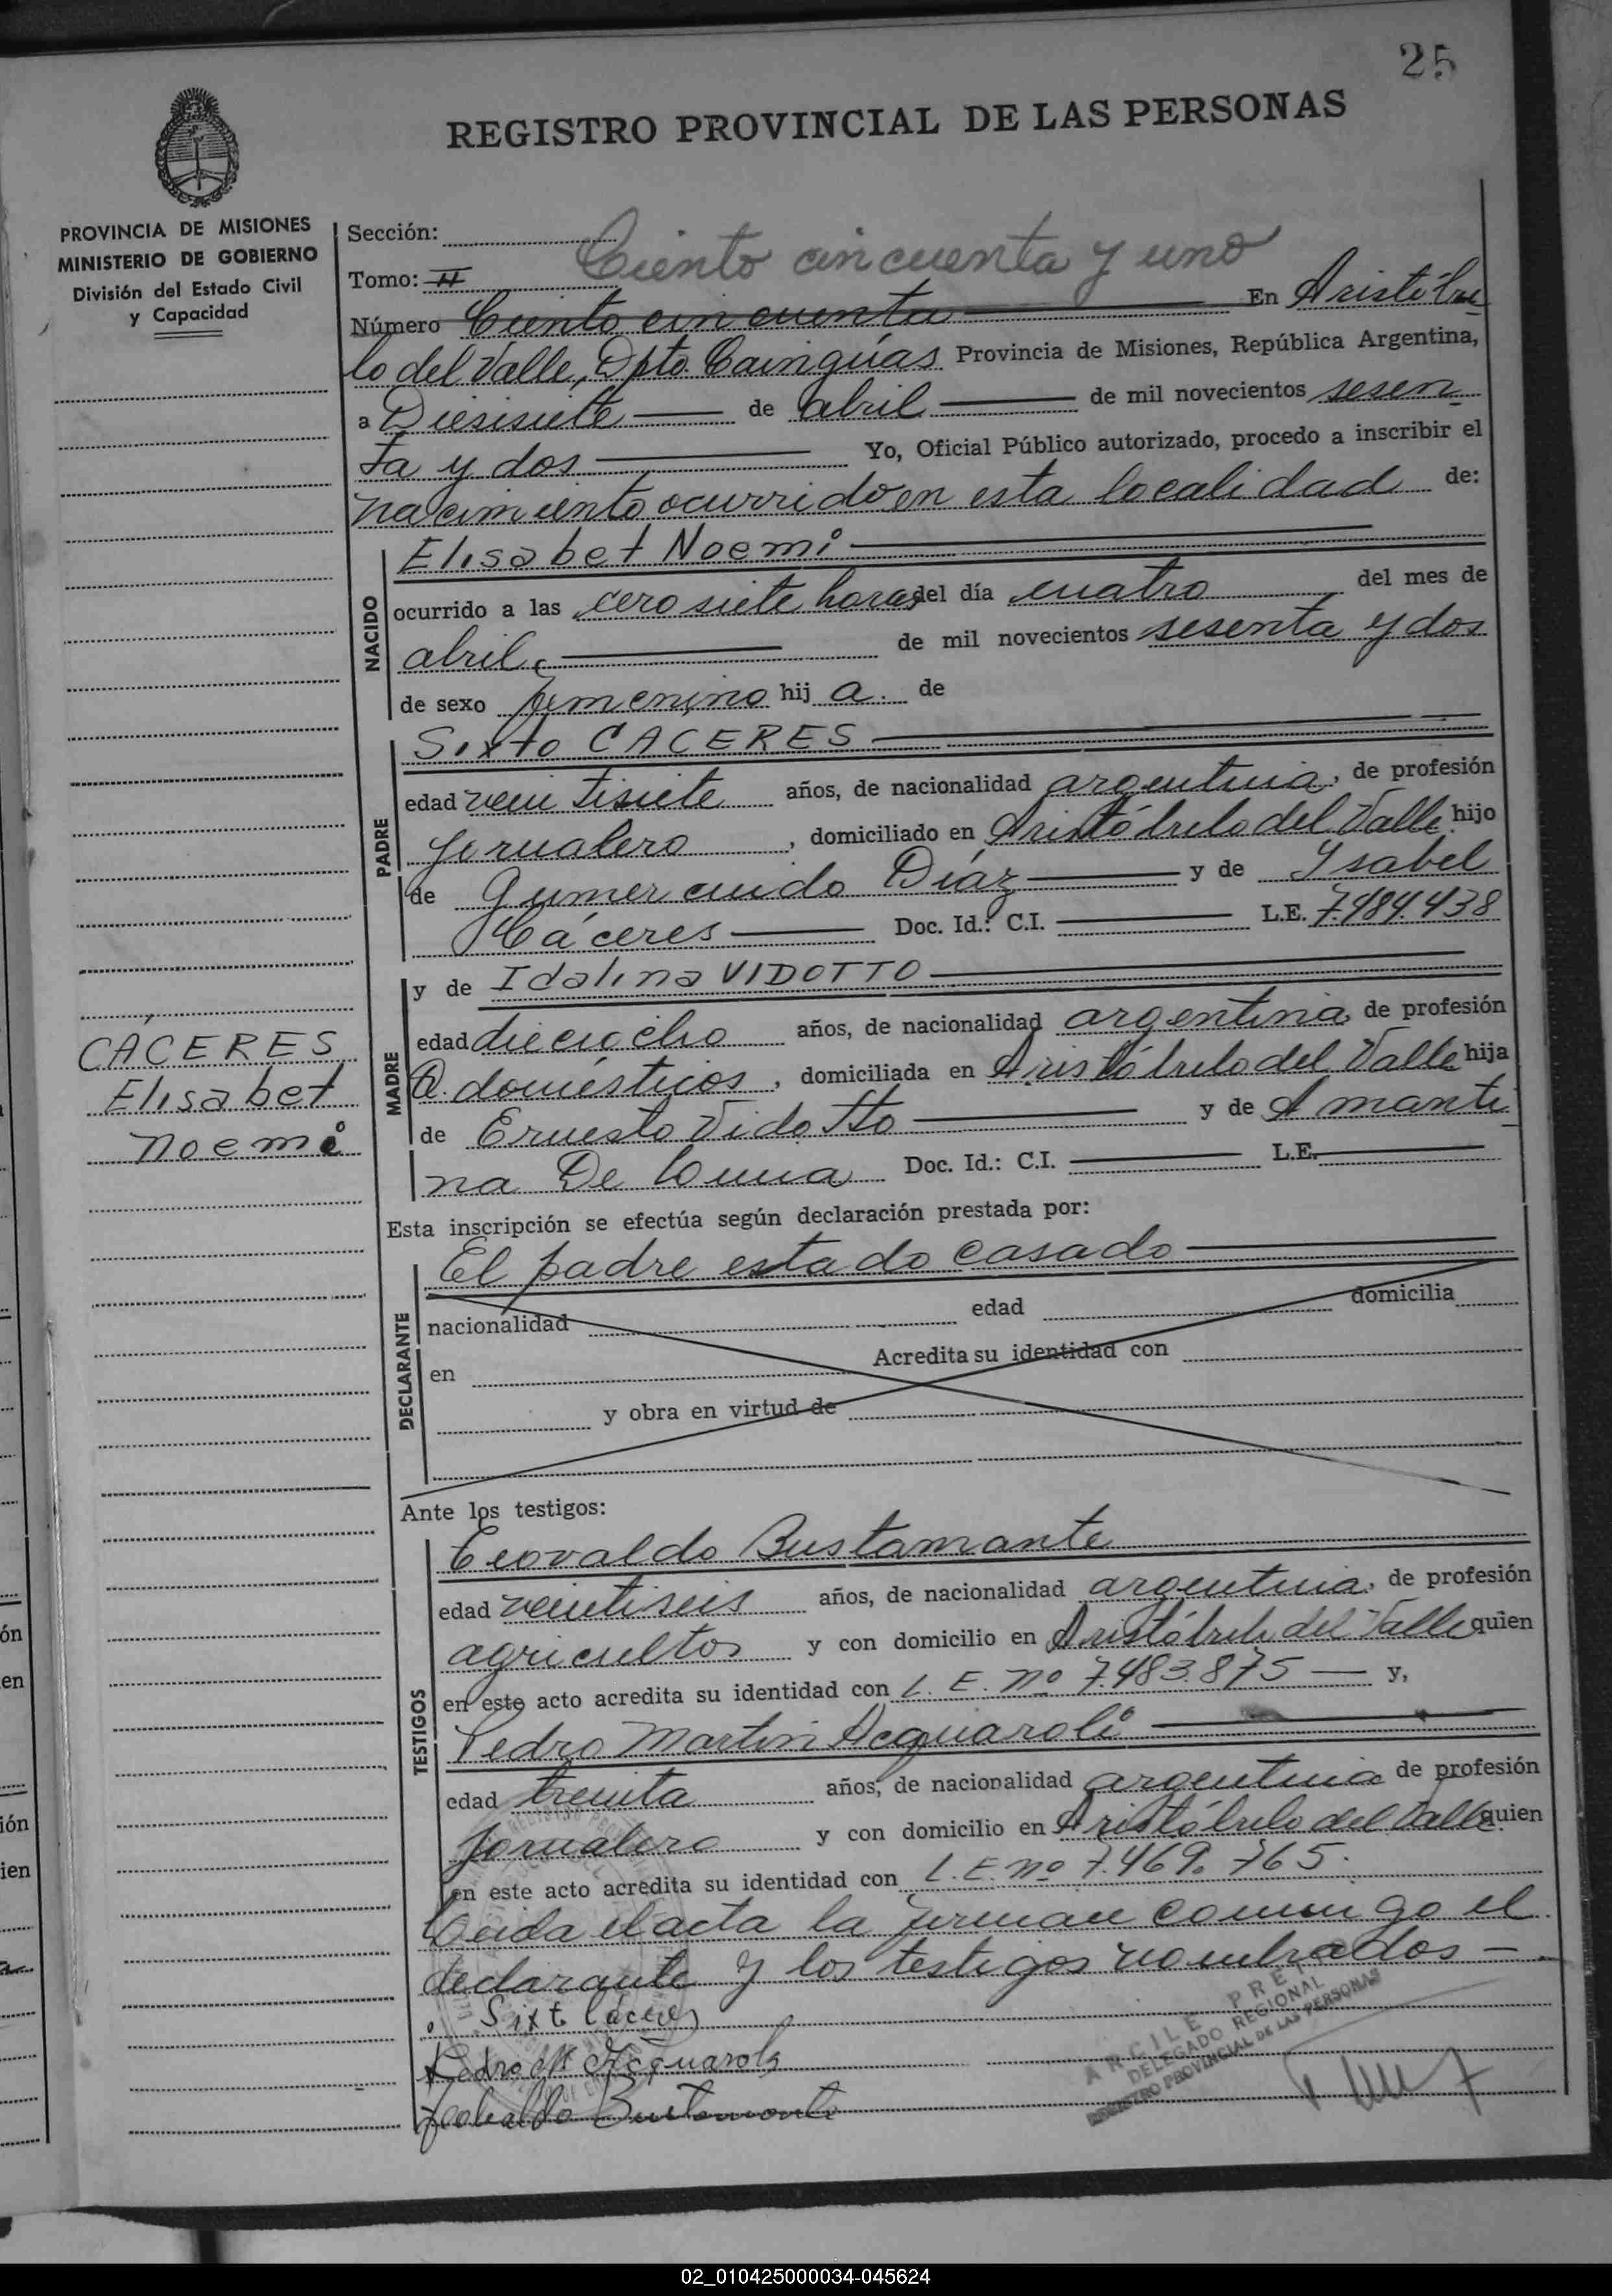 25
REGISTRO PROVINCIAL DE LAS PERSONAS
PROVINCIA DE MISIONES
MINISTERIO DE GOBIERNO
División del Estado Civil
y Capacidad
Sección:
Ciento cincuenta y uno
Tomo: II
Número Ciento cincuenta En Aristóbu
lo del Valle, Dpto. Cainguas Provincia de Misiones, República Argentina,
a Diesisiete de abril de mil novecientos sesen
ta y dos Yo, Oficial Público autorizado, procedo a inscribir el
nacimiento ocurrido en esta localidad de:
NACIDO
Elisabet Noemi
ocurrido a las cero siete horas del día cuatro del mes de
abril de mil novecientos sesenta y dos
de sexo femenino hij a. de
PADRE
Sixto CACERES
edad veintisiete años, de nacionalidad argentina, de profesión
Jornalero, domiciliado en Aristóbulo del Valle hijo
de Gumercindo Díaz y de Ysabel
Cáceres Doc. Id.: C.I. L.E. 7.484.438
MADRE
y de Idalina VIDOTTO
edad dieciocho años, de nacionalidad argentina, de profesión
Q. domésticos, domiciliada en Aristóbulo del Valle hija
de Ernesto Vidotto y de Amanti
na De Doc. Id.: C.I. L.E.
CÁCERES
Elisabet
Noemi
Esta inscripción se efectúa según declaración prestada por:
DECLARANTE
El padre estado casado
nacionalidad edad domicilia
en Acredita su identidad con
y obra en virtud de
Ante los testigos:
TESTIGOS
Teovaldo Bustamante
edad veintiseis años, de nacionalidad argentina, de profesión
agricultor y con domicilio en Aristóbulo del Valle quien
en este acto acredita su identidad con L. E. nº 7.483.875 y,
Pedro Martin Acquaroli
edad treinta años, de nacionalidad argentina de profesión
Jornalero y con domicilio en Aristóbulo del Valle quien
en este acto acredita su identidad con L. E. nº 7.469.765.
Leida el acta la firman conmigo el
declarante y los testigos nombrados
Sixto Cáceres
Pedro M Acquaroli
Teobaldo Bustamante
DELEGADO REGIONAL
REGISTRO PROVINCIAL DE LAS PERSONAS
02_010425000034-045624